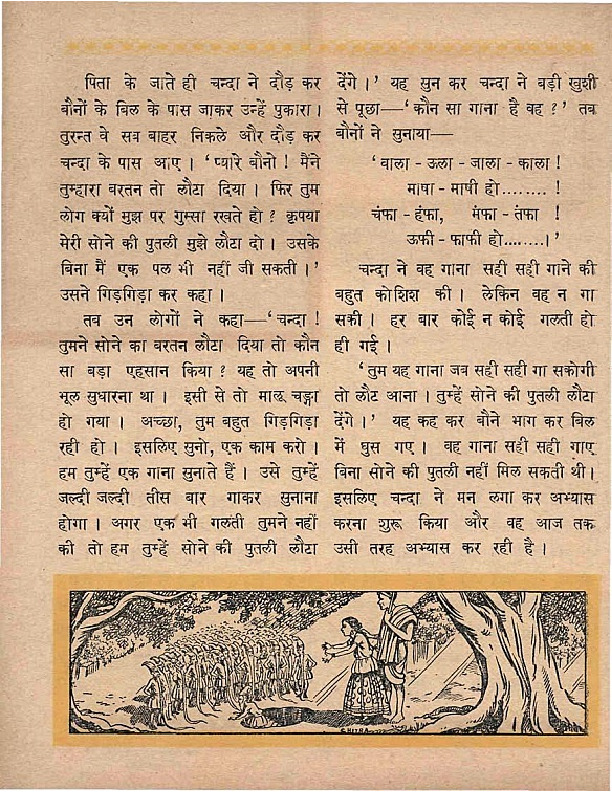 पिता के जाते ही चन्दा ने दौड़ कर
बौनों के बिल के पास जाकर उन्हें पुकारा।
तुरन्त वे सब बाहर निकले और दौड़ कर
चन्दा के पास आए। ‘प्यारे बौनो! मैंने
तुम्हारा बरतन तो लौटा दिया। फिर तुम
लोग क्यों मुझ पर गुस्सा रखते हो? कृपया
मेरी सोने की पुतली मुझे लौटा दो। उसके
बिना मैं एक पल भी नहीं जी सकती।’
उसने गिड़गिड़ा कर कहा।
तब उन लोगों ने कहा—‘चन्दा!
तुमने सोने का बरतन लौटा दिया तो कौन
सा बड़ा एहसान किया? यह तो अपनी
भूल सुधारना था। इसी से तो मालू चङ्गा
हो गया। अच्छा, तुम बहुत गिड़गिड़ा
रही हो। इसलिए सुनो, एक काम करो।
हम तुम्हें एक गाना सुनाते हैं। उसे तुम्हें
जल्दी जल्दी तीस बार गाकर सुनाना
होगा। अगर एक भी गलती तुमने नहीं
की तो हम तुम्हें सोने की पुतली लौटा
देंगे।’ यह सुन कर चन्दा ने बड़ी खुशी
से पूछा—‘कौन सा गाना है वह?’ तब
बौनों ने सुनाया—
‘वाला - ऊला - जाला - काला!
माषा - माषी हो........ !
चंफा - हंफा, मंफा - तंफा !
ऊफी - फाफी हो........।’
चन्दा ने वह गाना सही सही गाने की
बहुत कोशिश की। लेकिन वह न गा
सकी। हर बार कोई न कोई गलती हो
ही गई।
‘तुम यह गाना जब सही सही गा सकोगी
तो लौट आना। तुम्हें सोने की पुतली लौटा
देंगे।’ यह कह कर बौने भाग कर बिल
में घुस गए। वह गाना सही सही गाए
बिना सोने की पुतली नहीं मिल सकती थी।
इसलिए चन्दा ने मन लगा कर अभ्यास
करना शुरू किया और वह आज तक
उसी तरह अभ्यास कर रही है।
CHITRA